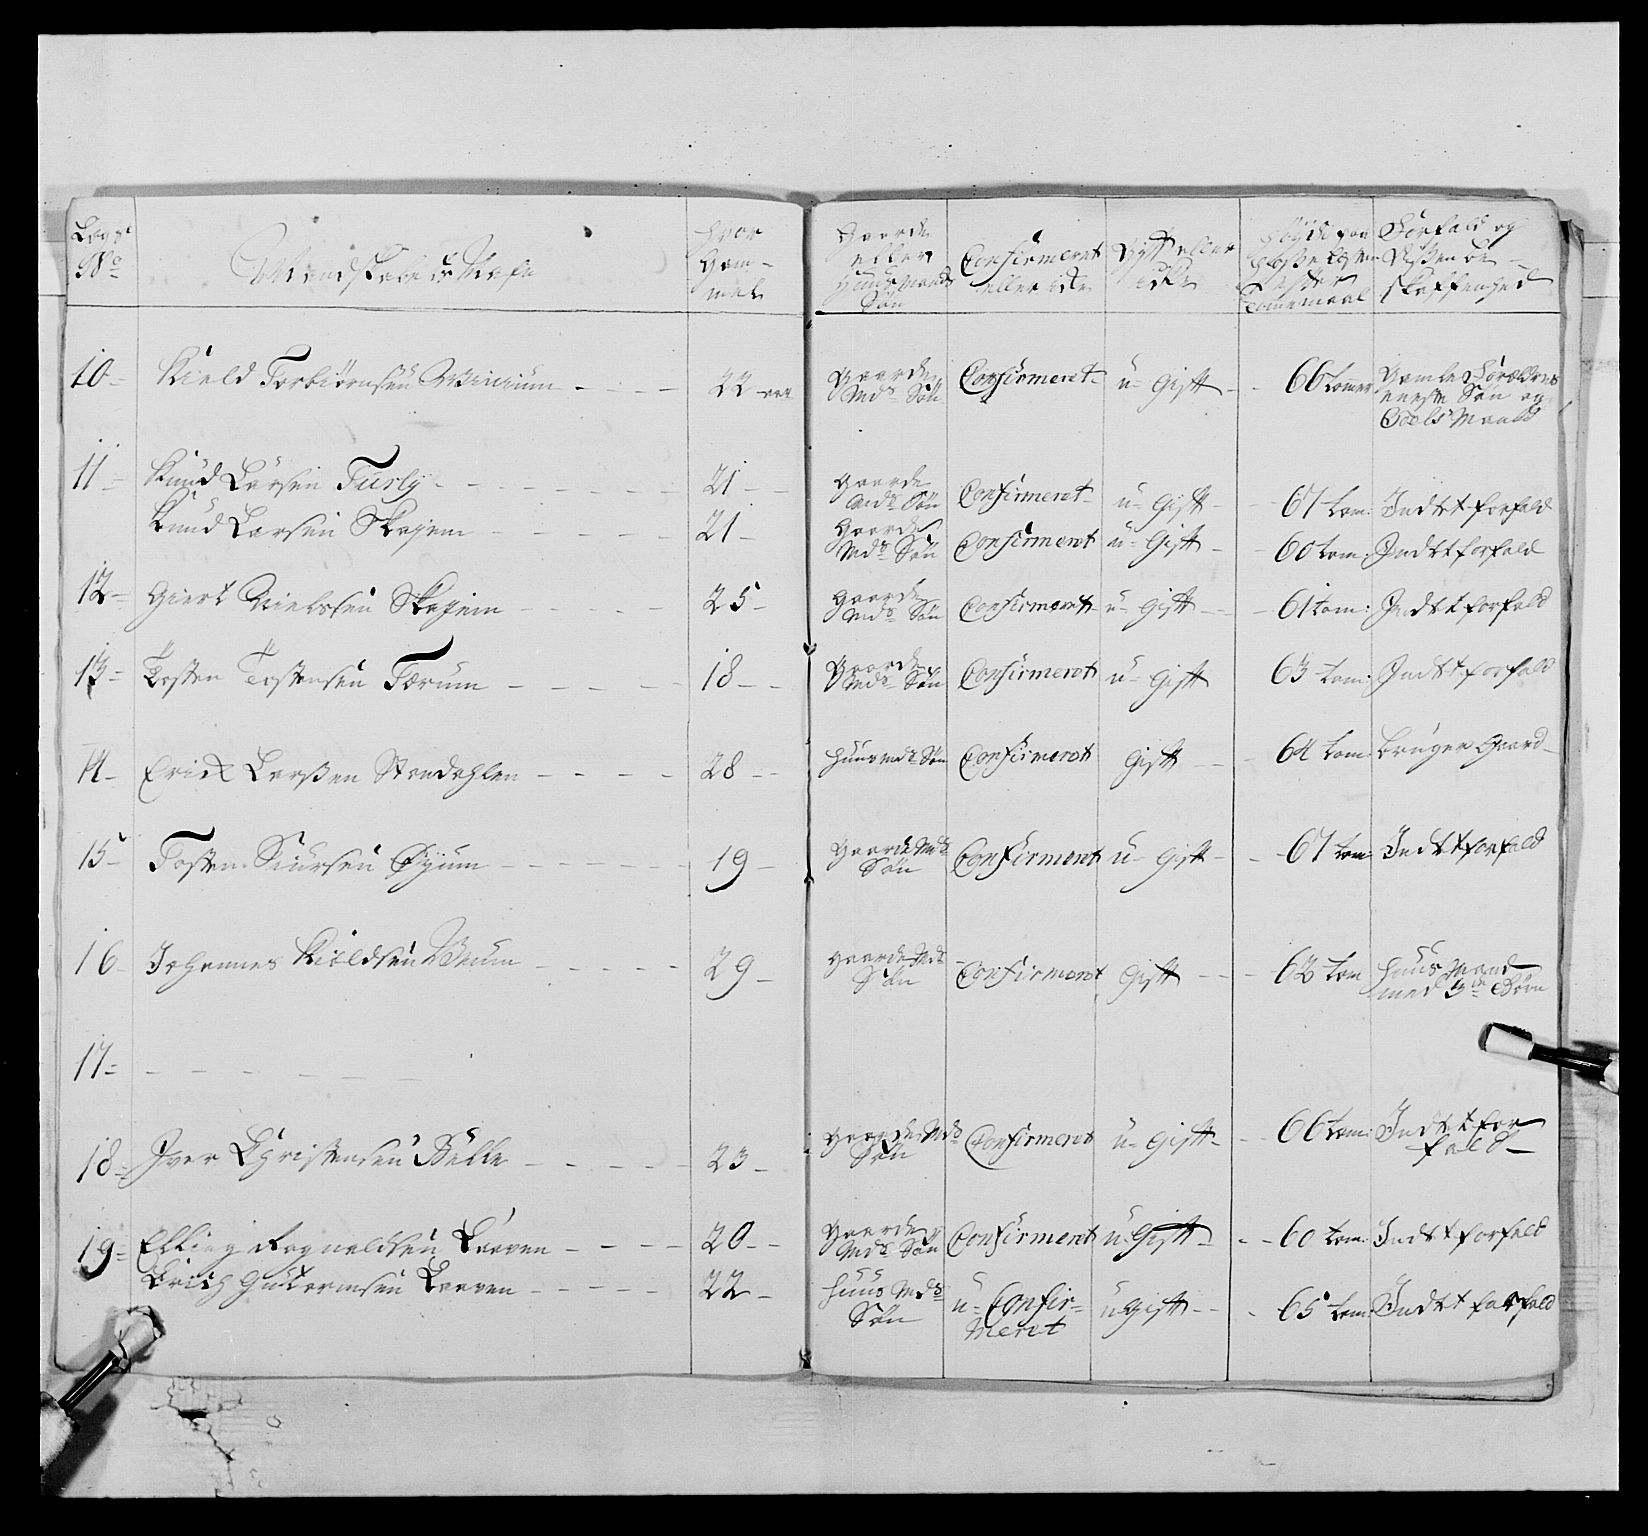 Lægs No | Mandskabets Nafn | Hvor Gam- mel | Gaarde eller Huusmands Søn | Confirmeret eller icke | Gift eller icke | Høyde paa efter Tommemaal | Forfald og dessen be- skaffenhed
10- Kield Torbiørnsen - - - 22 aar Gaarde Mds Søn Confirmeret- u- Gift - - 66 tommer Gamle Forældres eneste Søn og Odels Mand
11- Knud Larsen - - - 21 - Gaarde Mds Søn Confirmeret- u- Gift - - 67 tom: Indtet forfald
Knud Larsen Skajem - - - 21 - Gaarde Mds Søn Confirmeret u- Gift - - 60 tom: Indtet forfald
12- Giert Nielssen Skajem - - - 25 - Gaarde Mds Søn Confirmeret- u- Gift - - 61 tom: Indtet forfald
13- Tosten Tostensen Færum - - - 18 - - Gaarde Mds Søn Confirmeret u- Gift 63 tom: Indtet forfald
14- Erick Larssen Stendahlen - - - 28 - - Huusmds Søn Confirmeret Gift - - 64 tom: bruger Gaard-
15- Tosten Siursen Øyum - - - 19 - Gaarde Mds Søn Confirmeret u- Gift - - 67 tom: Indtet forfald
16- Johannes Kieldsen - - - 29 - Gaarde Mds Søn Confirmeret Gift - - 62 tom Huus Mand med 3de Børn
17- - - - - - -
18- Iver Christensen Bælle - - - 23 - Gaarde Mds Søn Confirmeret u- Gift - - 66 tom: Indtet for fald-
19- Elling Ragnaldsen - - - 20 - - Gaarde Mds Søn Confirmeret u- Gift - - 60 tom: Indtet forfald
Erich Guttormsen - - - 22 - Huus Mds Søn u- Confir- meret u Gift - - 65 tom: Indtet forfald